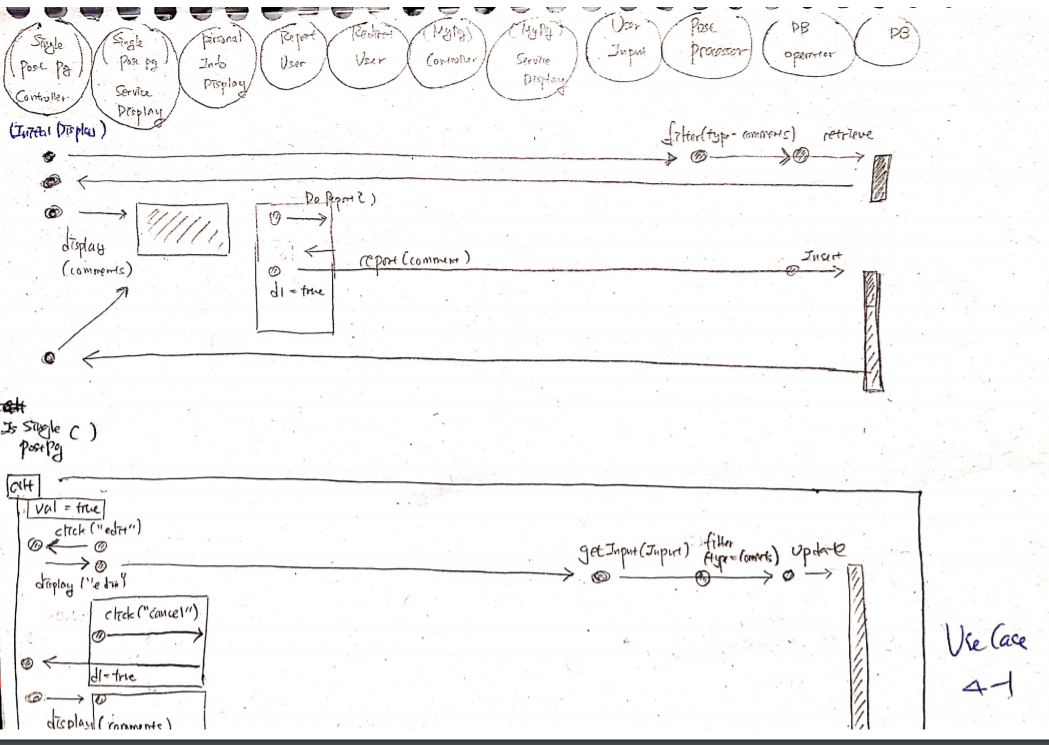 Single
Post Pg
Controller
Single
Post pg
Service
Display
personal
Info
Display
Report
User
Redirect
User
(MyPg)
Controller
(MyPg)
Service
Display
User
Input
Post
processor
DB
operator
DB
(Initial Display)
filter(type-comments)
retrieve
Do Report()
display
(comments)
report(comment)
Insert
d1 = true
Is Single ( )
PostPg
alt
val = true
click("edit")
display("edit")
getInput(Input)
filter
Update
click("cancel")
d1=true
display(comments)
Use Case
4-1